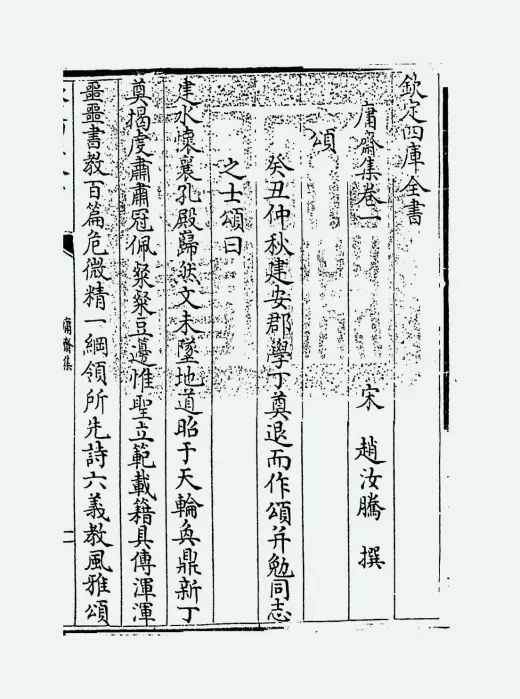 欽定四庫全書
庸齋集卷一
宋 趙汝騰 撰
頌
癸丑仲秋建安郡學丁奠退而作頌并勉同志
之士頌曰
建水懷襄孔殿巋然文未墜地道昭于天輪奐鼎新丁
奠揭虔肅肅冠佩粲粲豆籩惟聖立範載籍具傳渾渾
噩噩書教百篇危微精一綱領所先詩六義教風雅頌
庸齋集